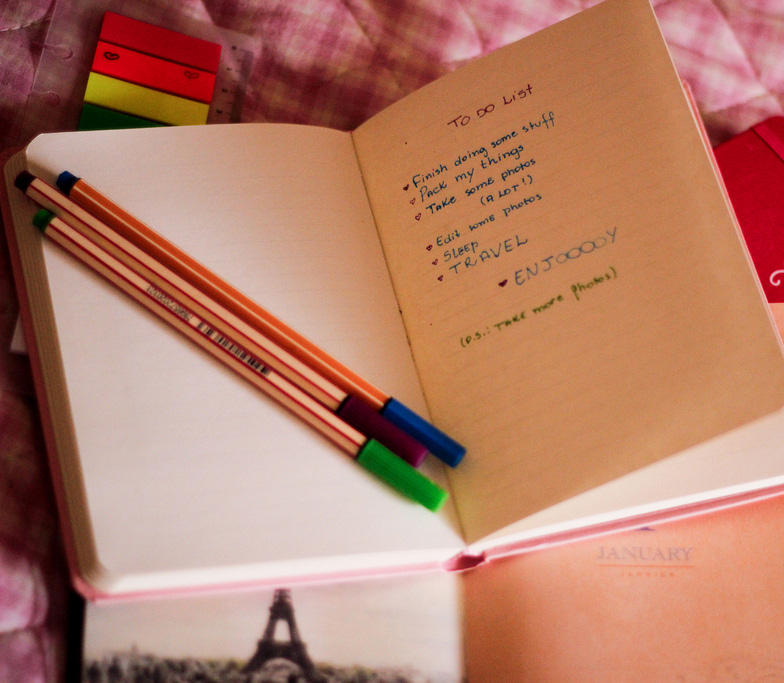 To Do List
Finish doing some stuff
Pack my things
Take some photos
(A LOT!)
Edit some photos
Sleep
TRAVEL
ENJOOOOY
(P.S.: TAKE more photos)
JANUARY